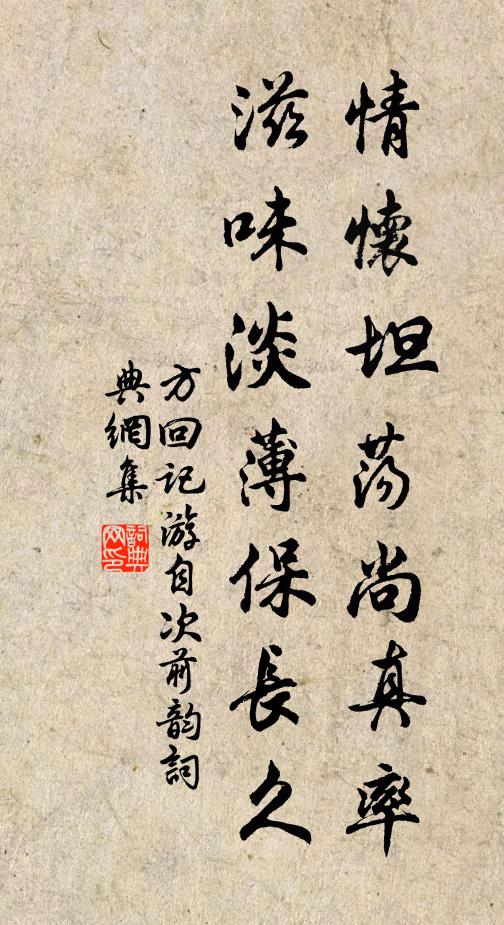 情懷坦蕩尚真率
滋味淡薄保長久
方回記游自次前韵詞
典網集
詞典
网印